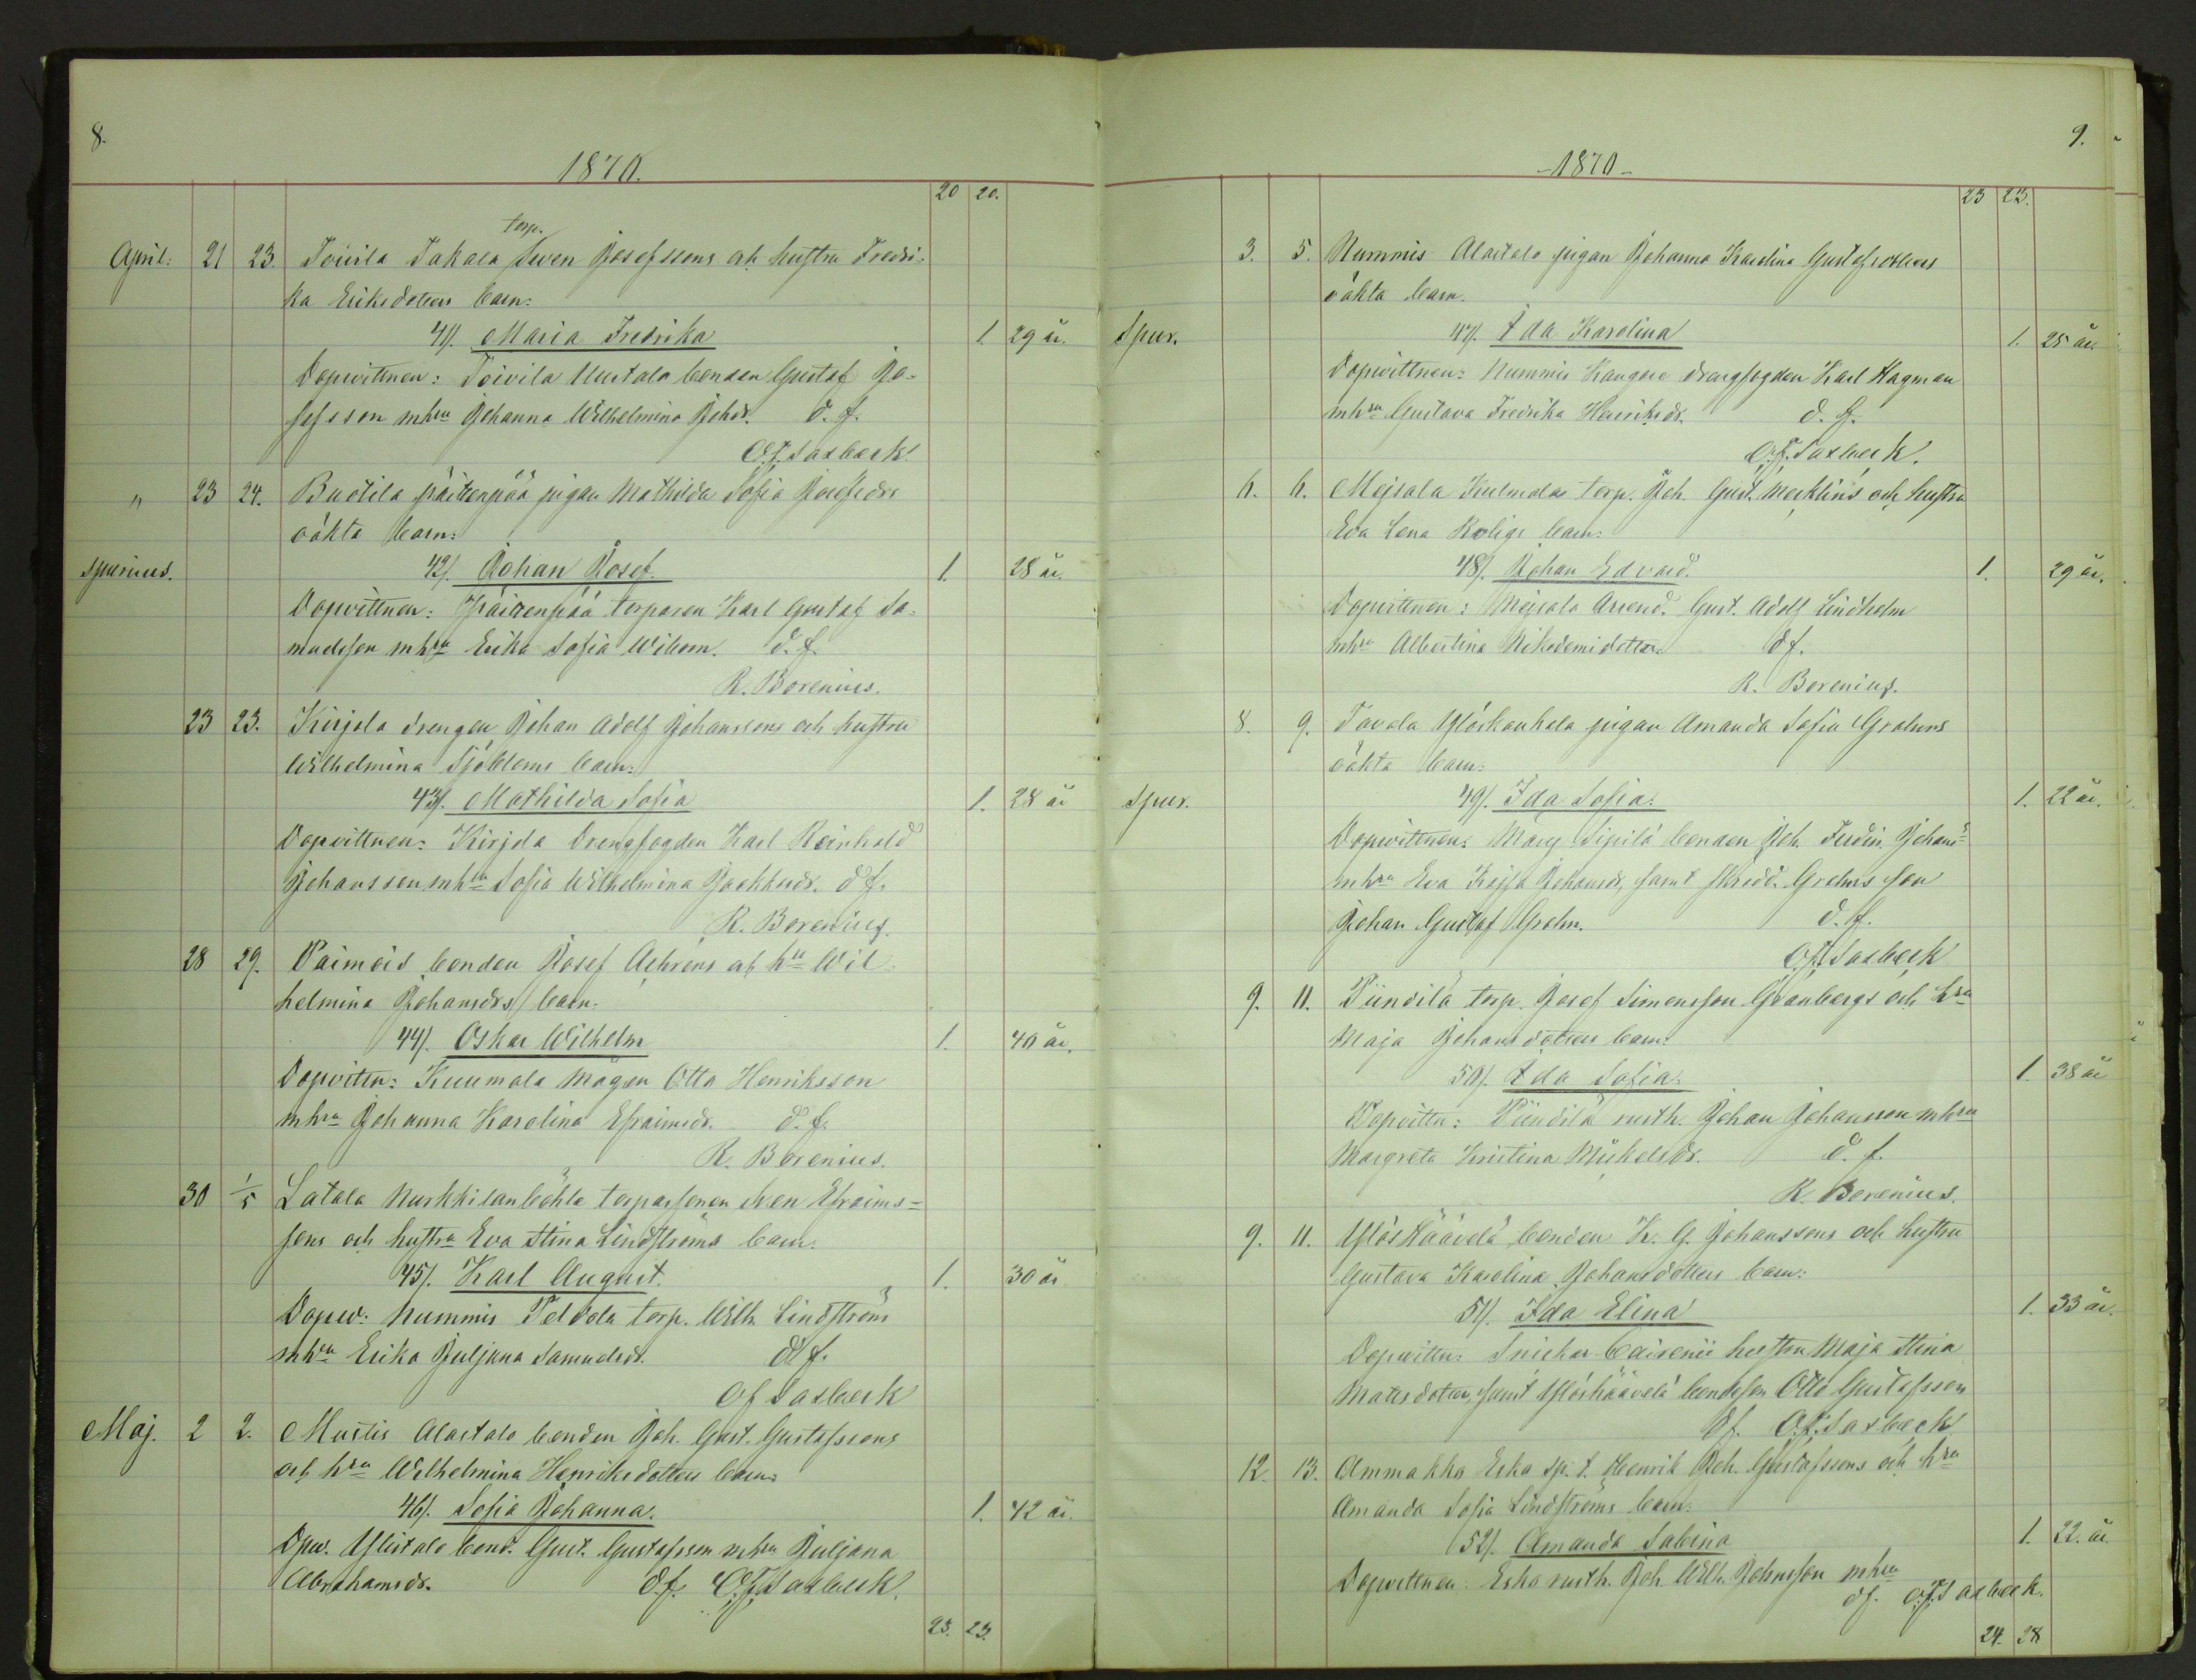 8.
1870.
20 20.
torp.
April. 21 23. Toivila Jakala Swen Josefssons och hustru Fredri-
ka Eriksdotters barn:
41/. Maria Fredrika 1. 29 år.
Dopvittnen: Toivila Uustalo bonden Gustaf Jo-
sefsson mhru Johanna Wilhelmina Johdr. d. f.
O.F. Saxbäck
" 23 24. Bustila päitzenpää pigan Mathilda Sofia Josefsdrs
oäkta barn:
spurius. 42/. Johan Josef 1. 28 år.
Dopvittnen: Päitzenpää torparen Karl Gustaf Sa-
muelsson mhru Erika Sofia Wibom. d. f.
R. Borenius.
23 23. Kirjola drengen Johan Adolf Johanssons och hustru
Wilhelmina Sjöbloms barn:
43/. Mathilda Sofia 1. 28 år
Dopvittnen: Kirjola Drengfogden Karl Reinhold
Johansson mhru Sofia Wilhelmina Joakimsdr. d f.
R. Borenius.
28 29. Paimois bonden Josef Achréns och hru Wil-
helmina Johansdrs barn:
44/. Oskar Wilhelm 1. 40 år.
Dopvittn: Kuumola mågen Otto Henriksson
mhru Johanna Karolina Efraimsdr. d. f.
R. Borenius.
30 1/5 Latala Nurkkilanböhle torparsonen Sven Efraims-
sons och hustru Eva Stina Lindströms barn:
45/. Karl August. 1. 30 år.
Dopw: Nummis Peldola torp. Wilh. Lindström
mhru Erika Juljana Samuelsdr. d f.
O f Saxbäck
Maj. 2 2. Mustis Alastalo bonden Joh. Gust. Gustafssons
och hru Wilhelmina Henriksdotters barn:
46/. Sofia Johanna. 1. 42 år.
Dpw. Ylistalo bond. Gust. Gustafsson mhru Juljana
Abrahamsdr. d.f. O.F. Saxbäck.
23. 23.
9.
-1870-
23 23.
3. 5. Nummis Alastalo pigan Johanna Karolina Gustafsdotters
oäkta barn.
Spur. 47/. Ida Karolina 1. 25 år.
Dopvittnen: Nummis Kangare drengfogden Karl Hagman
mhru Gustava Fredrika Henriksdr. d. f.
O.F. Saxbäck.
6. 6. Mejsala Kulmala torp. Joh. Gust. Mecklins och hustru
Eva Lena Roligs barn:
48/. Johan Edvard. 1. 29 år.
Dopvittnen: Mejsala Arrend. Gust. Adolf Lindholm
mhru Albertina Nikodemidotter. d f.
R. Borenius.
8. 9. Tavola Yliskankala pigan Amanda Sofia Grohns
oäkta barn:
Spur. 49/. Ida Sofia. 1. 22 år.
Dopvittnen: Mary Sipilä bonden Joh. Ferdin. Johans-
mhru Eva Kajsa Johansdr, samt skredd. Grohns son
Johan Gustaf Grohn. d. f.
O.F. Saxbäck
9. 11. Piindilä torp. Josef Simonsson Granbergs och hru
Maja Johansdotters barn:
50/. Ida Sofia. 1. 38 år
Dopvittn: Piindilä rusth. Johan Johansson mhru
Margreta Kristina Mickelsdr. d. f.
R. Borenius.
9. 11. Yliskäävelä bonden K. G. Johanssons och hustru
Gustava Karolina Johansdotters barn:
51/. Ida Elina 1. 33 år.
Dopvittn: Snickar hustru Maja Stina
Matsdotter, samt Yliskäävelä bondeson Otto Gustafsson
d f. O.F. Saxbäck
12. 13. Ammakka Erho sp. t. Henrik Joh. Gustafssons och hru
Amanda Sofia Lindströms barn:
52/. Amanda Sabina 1. 22. år.
Dopvittnen: Erho rusth. Joh. Wilh. Johnsson mhru
df. O.F. Saxbäck.
24. 28